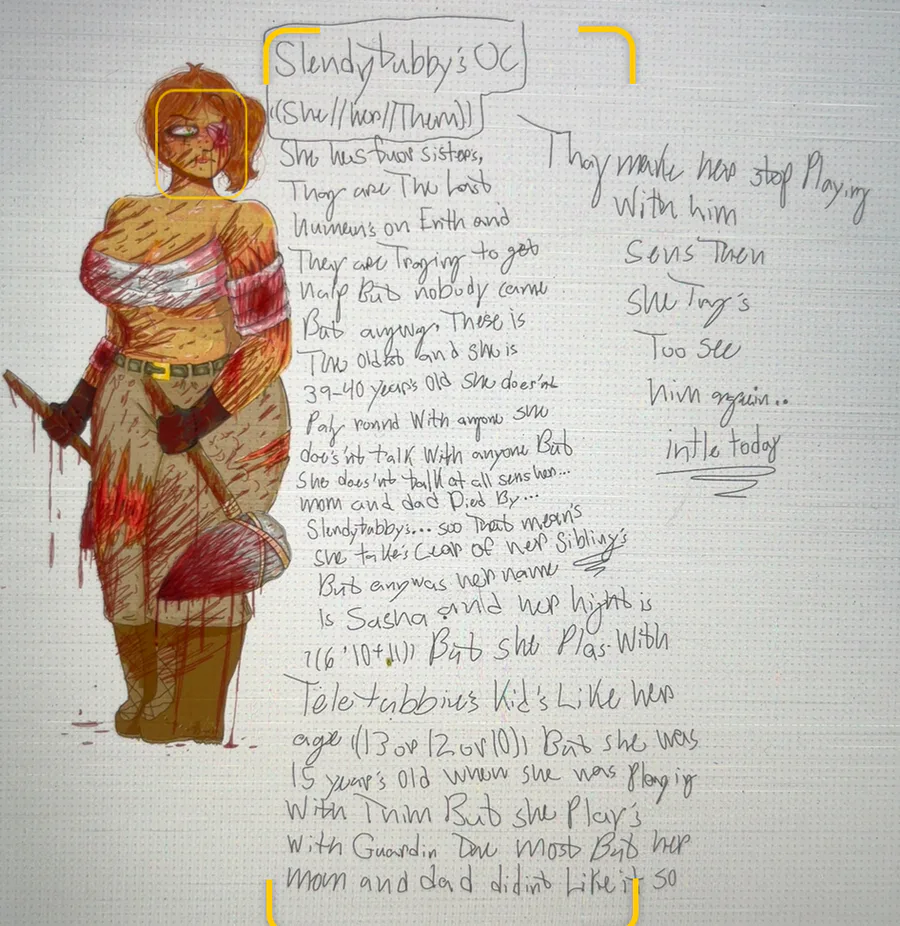 Slendytubby's OC
((She//her//Them))
She has fuor sisters,
Thay are The Last
humens on Erith and
They are Traying to get
halp But nobody came
But anyway, These is
The oldest and she is
39-40 year's old she does'nt
Paly rounnd With anyone she
does'nt talk With anyone But
she does'nt talk at all sens her...
mom and dad Died By...
Slendytubby's... soo That mean's
she take's Cear of her Sibling's
But anywas her name
Is Sasha and her hight is
((6'10+11)) But she Plas With
Teletubbive's Kid's Like her
age ((13 or 12 or 10)) But she was
15 year's old when she was Playing
With Thim But she Play's
With Guardin The most But her
mom and dad didint Like it so
Thay make her stop Playing
With him
sens Then
she Try's
Too see
him again..
intle today